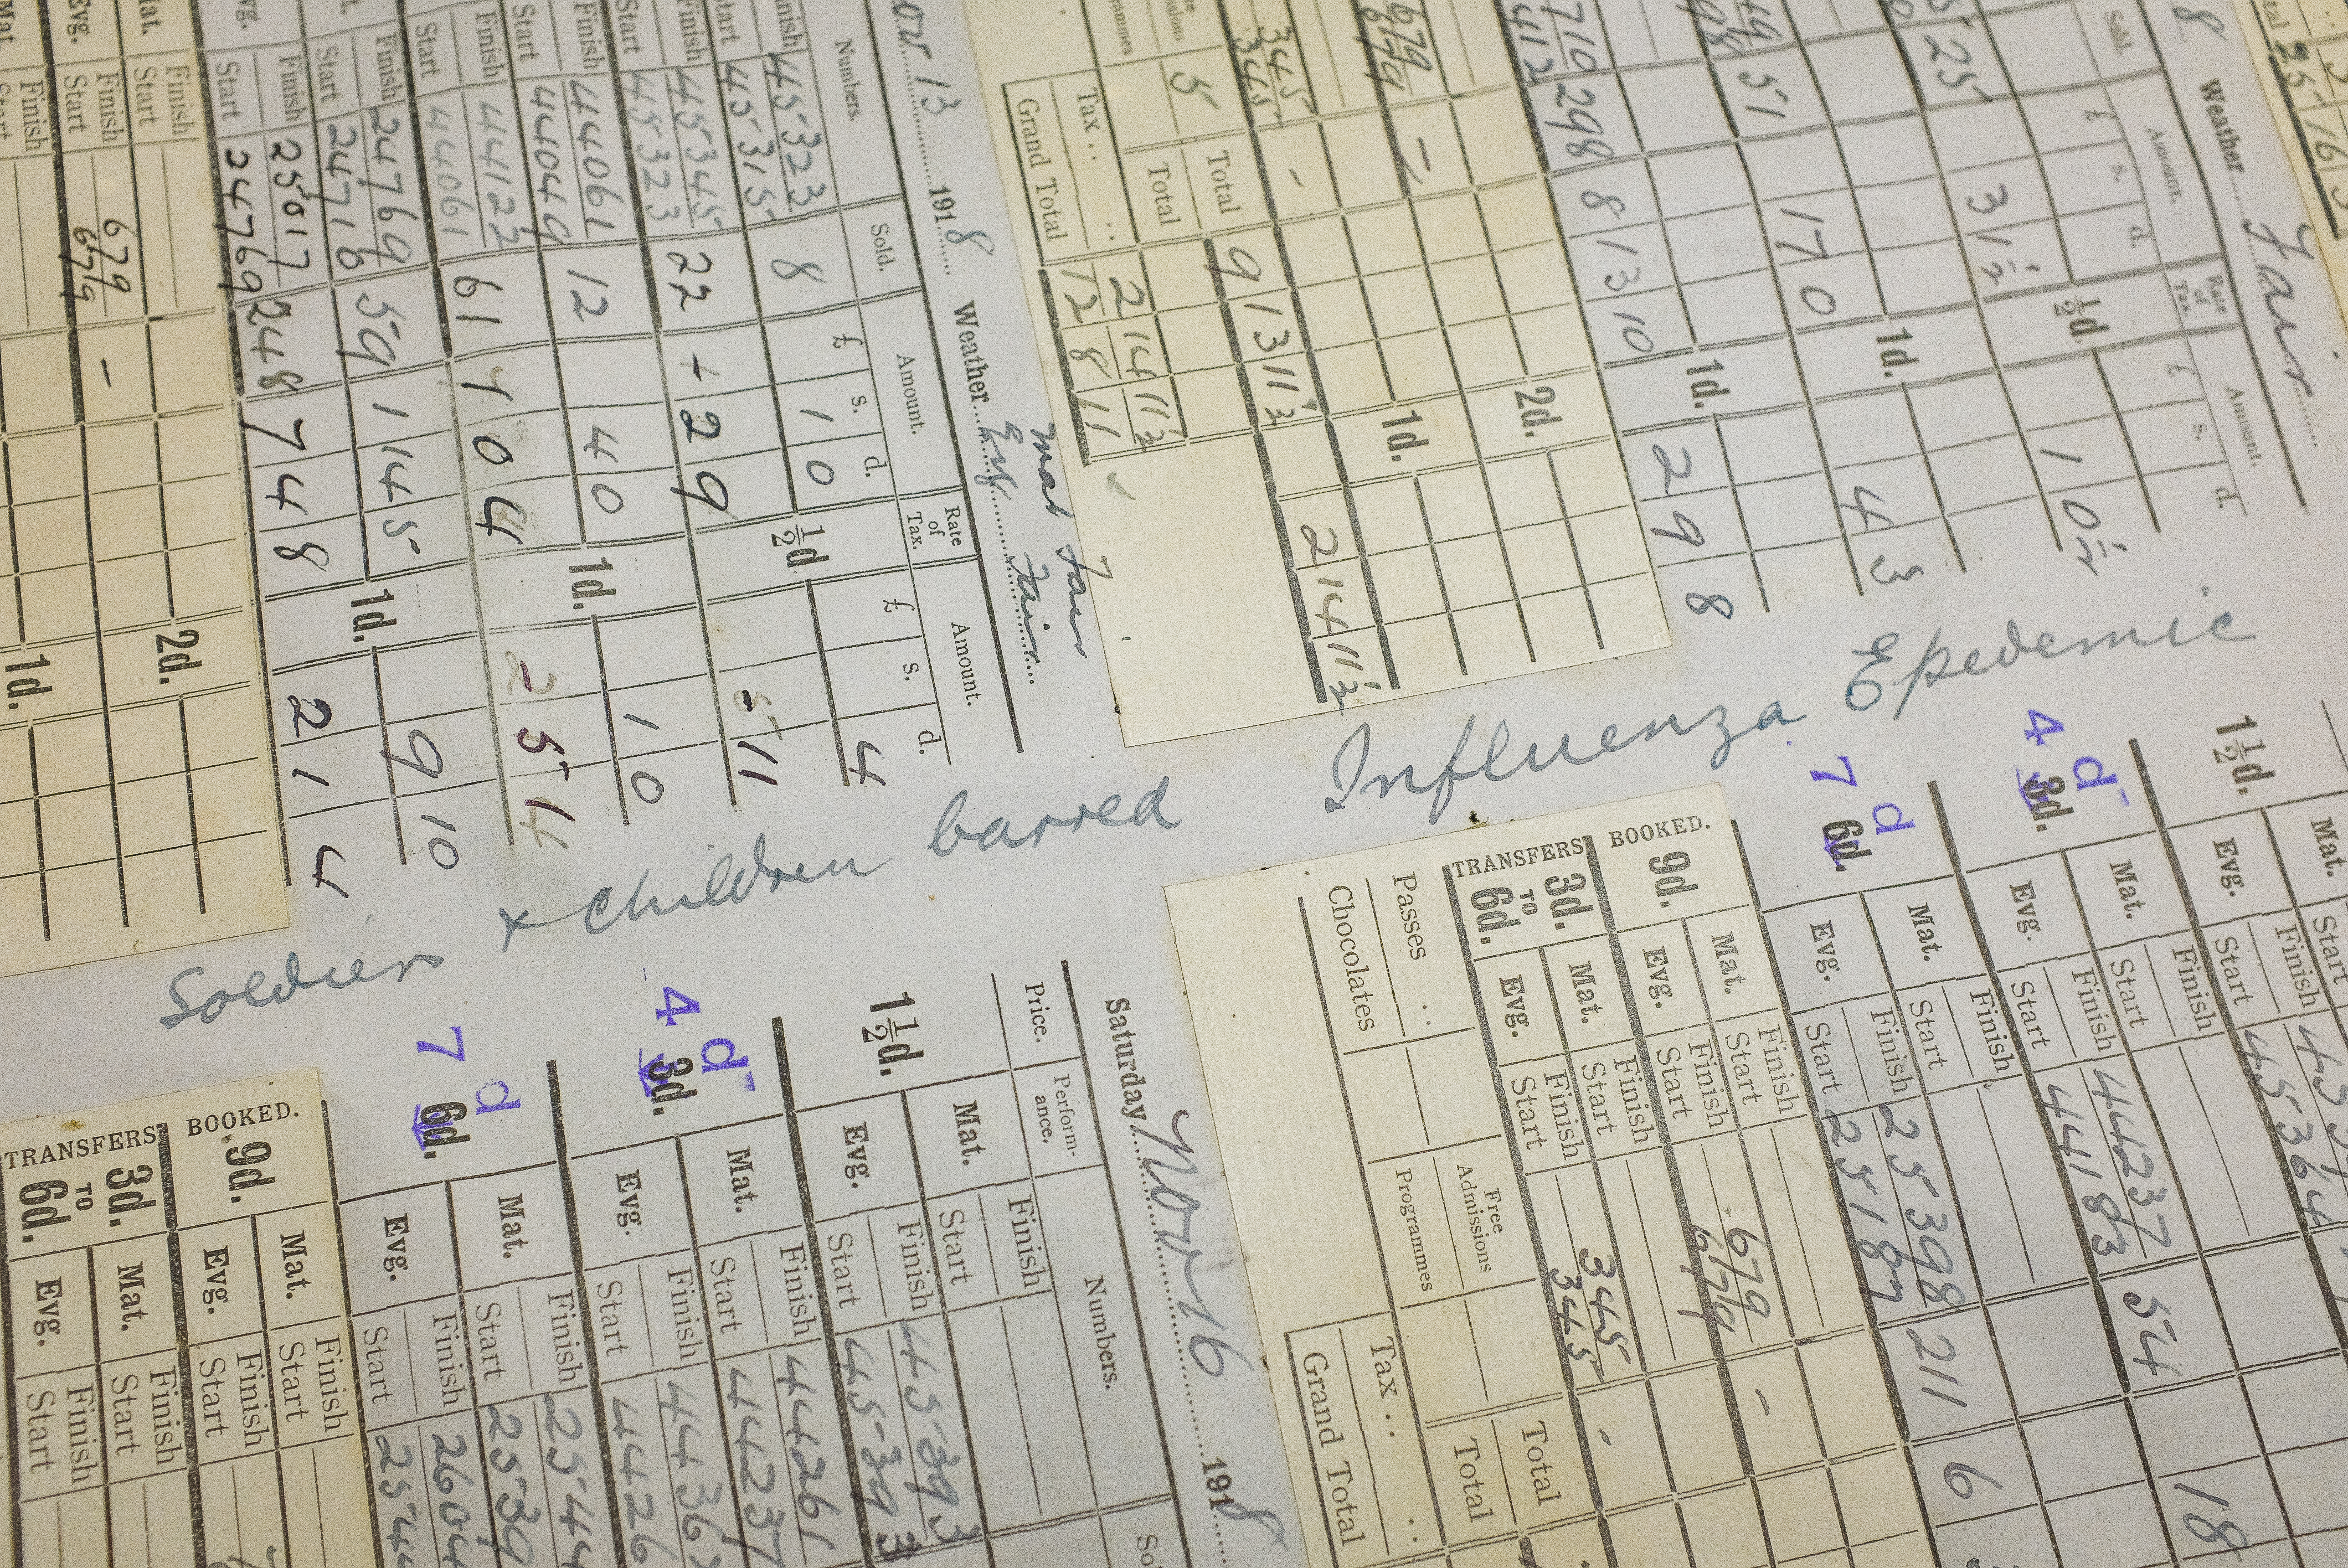 Nov 13 1918 Weather Mat Fair
Evg Fair
Numbers. Sold. Amount. Rate of Tax. Amount.
£ s. d. £ s. d.
Finish 45323 8 1 0 ½d 4
Start 45315
Finish 45345 22 2 9 11
Start 45323
Finish 44061 12 4 0 1d. 1 0
Start 44049
Finish 44122 61 1 0 4 5
Start 44061
Finish 24769 59 1 14 5 1d. 9 10
Start 24710
Finish 25017 248 7 4 8 2 1 4
Start 24769
Mat. Finish
Start
Evg. Finish 679 -
Start 679
2d.
Mat. Finish
Start
1d.
8 Weather Fair
Sold. Amount. Rate of Tax. Amount.
£ s. d. £ s. d.
25 3 1½ ½d. 1 0½
51 17 0 1d. 4 3
710 298 8 13 10 1d. 2 9 8
412
679 -
679
2d.
345 -
345
1d.
Total 9 13 11½ 2 14 11½
5 Total 2 14 11½
Tax ..
Grand Total 12 8 11
Soldiers & Children barred Influenza Epedemic
1½d. Mat. Start
Evg. Finish
Start 45364 18
4d 3d. Mat. Finish
Start
Evg. Finish 44237 54
Start 44183
7d 6d. Mat. Finish
Start
Evg. Finish 25398 211 6
Start 25187
BOOKED.
9d. Mat. Finish
Start
Evg. Finish 679 -
Start 679
TRANSFERS
3d. TO 6d. Mat. Finish
Start
Evg. Finish 345 -
Start 345
Passes .. Free Admissions Total
Chocolates Programmes Total
Tax ..
Grand Total
Saturday Nov 16 1918
Price. Perform-ance. Numbers.
1½d. Mat. Finish
Start
Evg. Finish 45393
Start 45393
4d 3d. Mat. Finish 44261
Start 44237
Evg. Finish
Start
7d 6d. Mat. Finish
Start
Evg. Finish
Start
BOOKED.
9d. Mat. Finish
Start
Evg. Finish
Start
TRANSFERS
3d. TO 6d. Mat. Finish
Start
Evg. Finish
Start